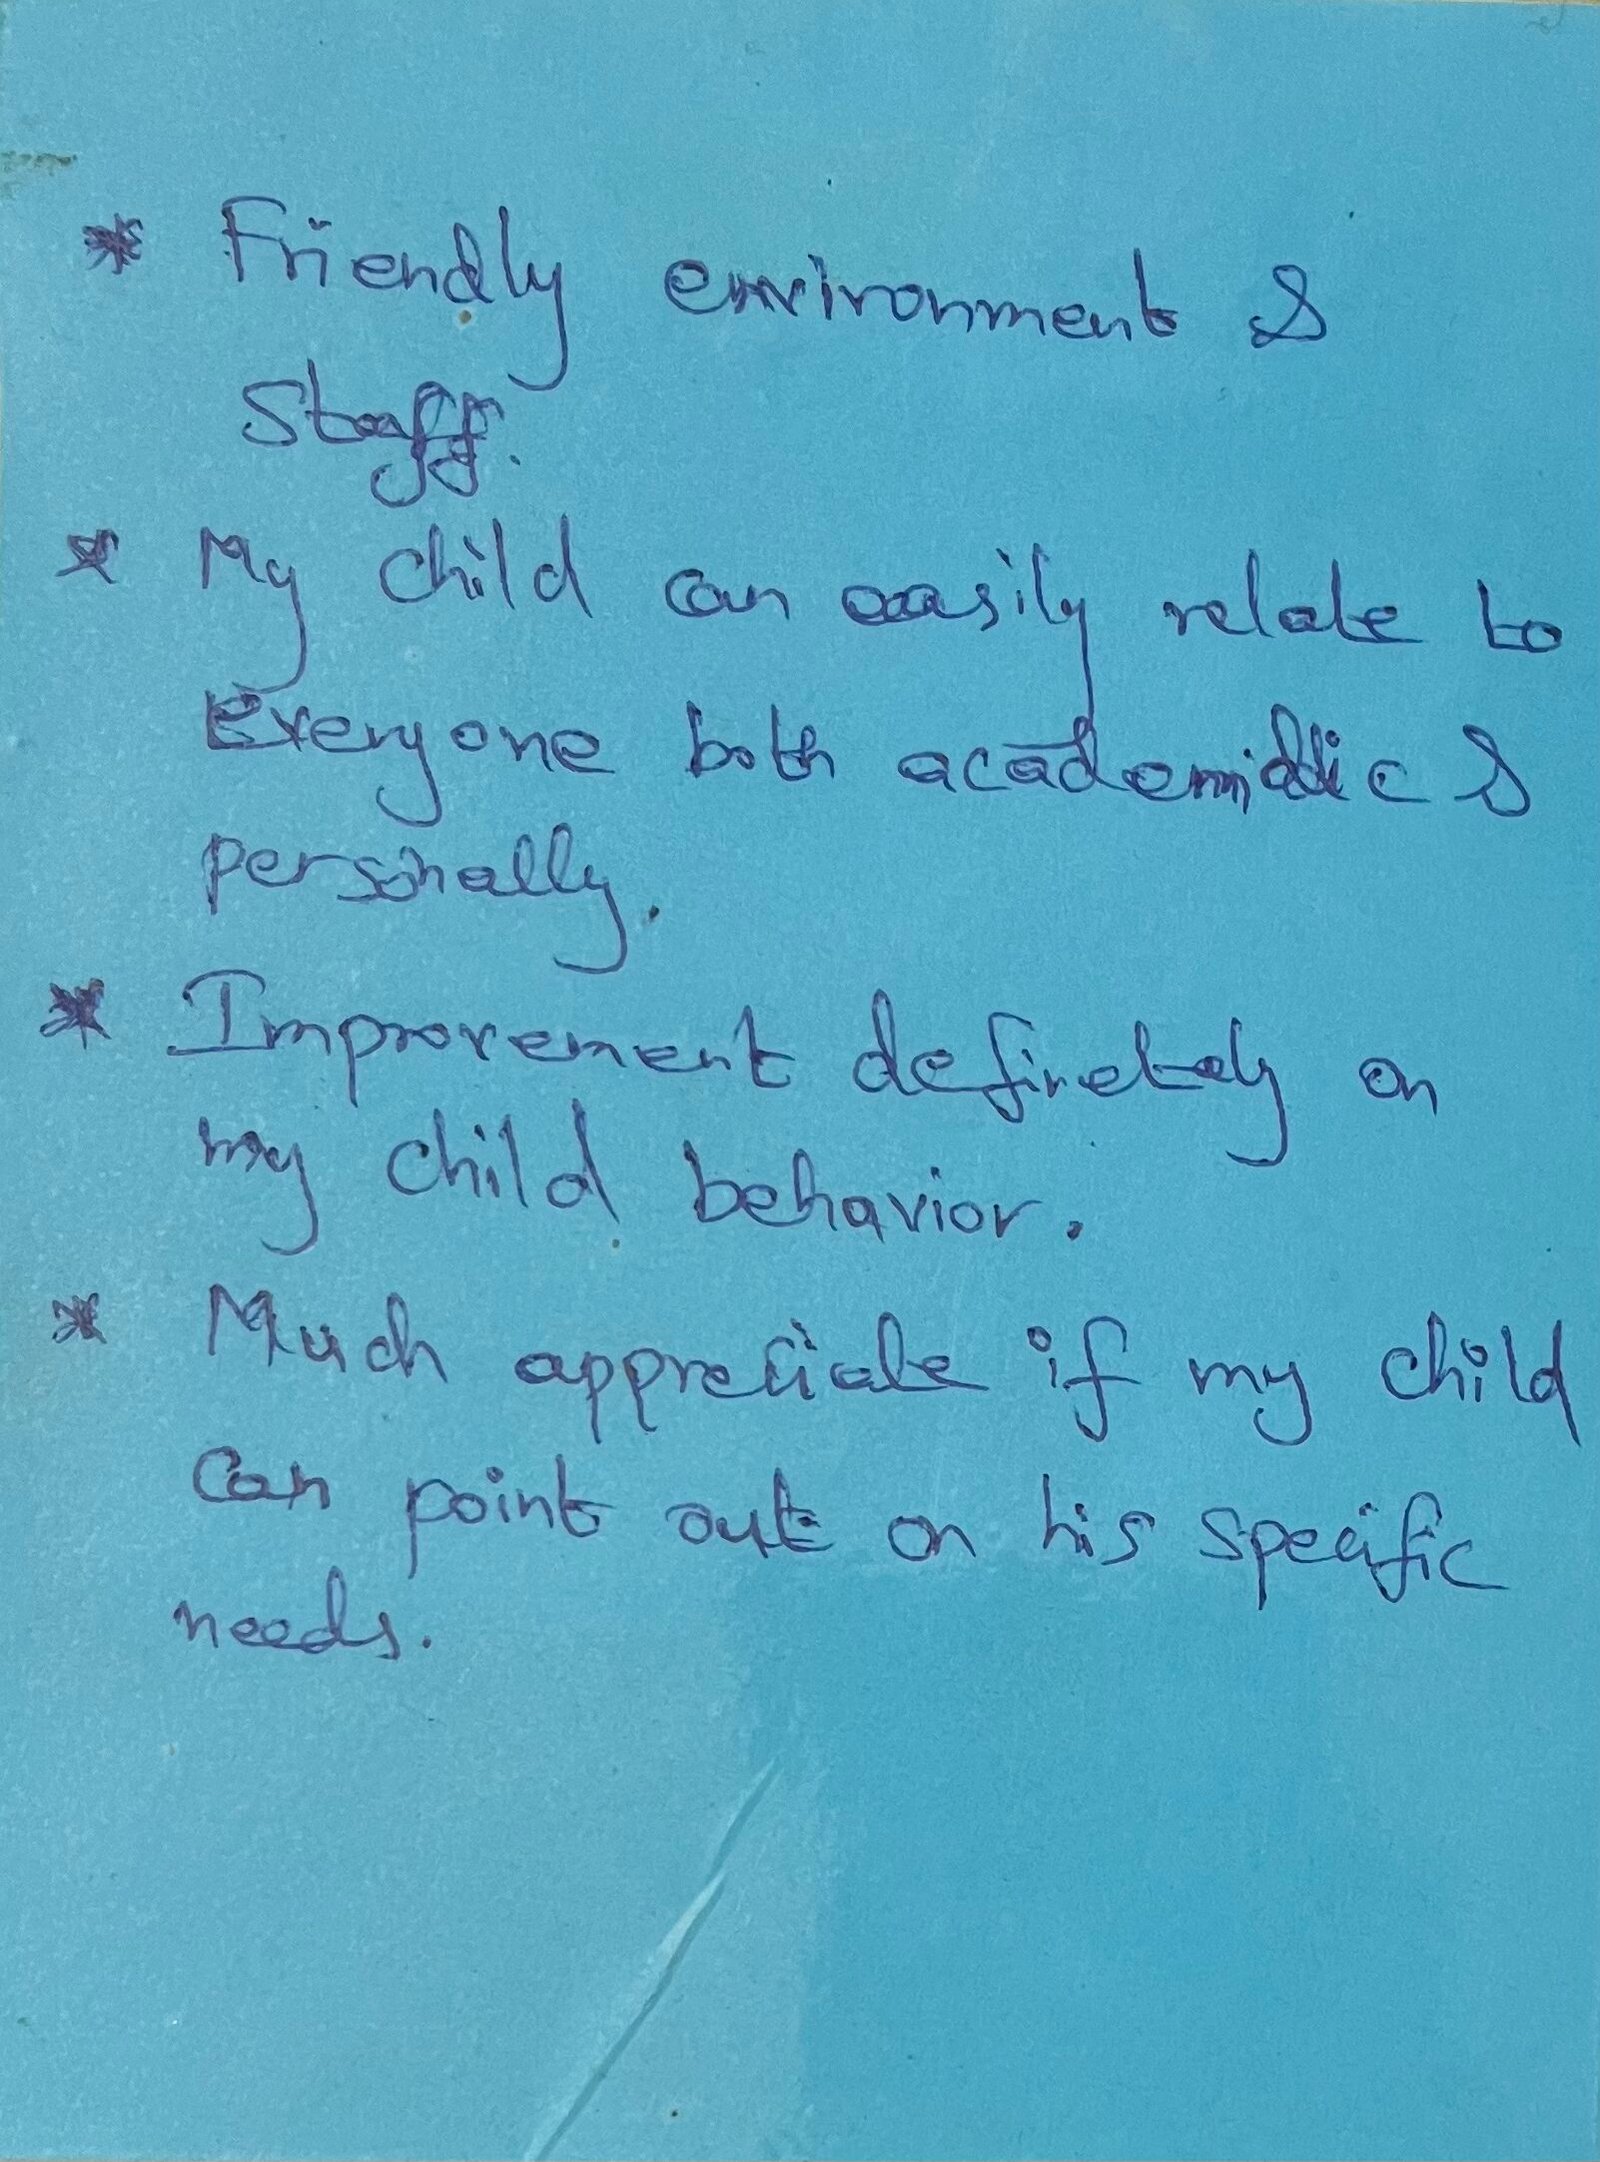 * Friendly environment &
Staff.
* My child can easily relate to
Everyone both academic &
personally.
* Improvement definetely on
my child behavior.
* Much appreciate if my child
can point out on his specific
needs.